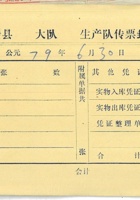 县 大队 生产队传票
公元 79 年 6 月 30 日
张 始
附属单据共
张
其他凭证
实物入库凭证
实物出库凭证
凭证整理单
合计
合计